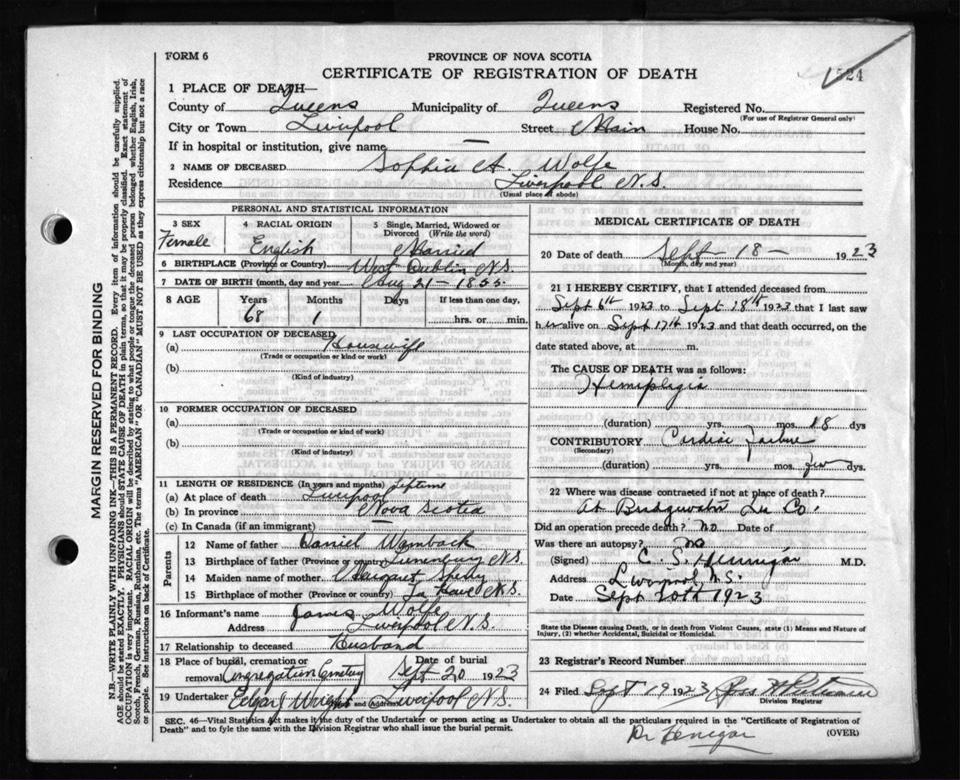 FORM 6
PROVINCE OF NOVA SCOTIA
CERTIFICATE OF REGISTRATION OF DEATH
524
1 PLACE OF DEATH—
County of Queens Municipality of Queens Registered No.
(For use of Registrar General only)
City or Town Liverpool Street Main House No.
If in hospital or institution, give name —
2 NAME OF DECEASED Sophia A. Wolfe
Residence Liverpool N.S.
(Usual place of abode)
PERSONAL AND STATISTICAL INFORMATION
3 SEX Female
4 RACIAL ORIGIN English
5 Single, Married, Widowed or Divorced (Write the word) Married
6 BIRTHPLACE (Province or Country) West Dublin N.S.
7 DATE OF BIRTH (month, day and year) Aug 21 – 1855.
8 AGE Years 68 Months 1 Days If less than one day, hrs. or min.
9 LAST OCCUPATION OF DECEASED
(a) Housewife
(Trade or occupation or kind or work)
(b)
(Kind of industry)
10 FORMER OCCUPATION OF DECEASED
(a)
(Trade or occupation or kind or work)
(b)
(Kind of industry)
11 LENGTH OF RESIDENCE (In years and months) Lifetime
(a) At place of death Liverpool
(b) In province Nova Scotia
(c) In Canada (if an immigrant)
Parents
12 Name of father Daniel Wamback
13 Birthplace of father (Province or country) Lunenburg N.S.
14 Maiden name of mother Margaret
15 Birthplace of mother (Province or country) La Have N.S.
16 Informant's name James Wolfe
Address Liverpool N.S.
17 Relationship to deceased Husband
18 Place of burial, cremation or removal Congregation Cemetery Date of burial Sept 20 1923
19 Undertaker Edgar J Wright and Address Liverpool N.S.
MEDICAL CERTIFICATE OF DEATH
20 Date of death Sept – 18 – 1923
(Month, day and year)
21 I HEREBY CERTIFY, that I attended deceased from
Sept 6th 1923 to Sept 18th 1923 that I last saw
h er alive on Sept 17th 1923 and that death occurred, on the
date stated above, at m.
The CAUSE OF DEATH was as follows:
Hemiplegia
(duration) yrs. mos. 18 dys
CONTRIBUTORY Cardiac Failure
(Secondary)
(duration) yrs. mos. few dys.
22 Where was disease contracted if not at place of death?
At Bridgewater Lu Co.
Did an operation precede death? no Date of
Was there an autopsy? no
(Signed) C. S. Hennigar M.D.
Address Liverpool, N.S.
Date Sept 20th 1923
State the Disease causing Death, or in death from Violent Causes, state (1) Means and Nature of
Injury, (2) whether Accidental, Suicidal or Homicidal.
23 Registrar's Record Number
24 Filed Sept 19 1923 Ross
Division Registrar
SEC. 46—Vital Statistics Act makes it the duty of the Undertaker or person acting as Undertaker to obtain all the particulars required in the "Certificate of Registration of
Death" and to fyle the same with the Division Registrar who shall issue the burial permit.
(OVER)
Dr Henegar
MARGIN RESERVED FOR BINDING
N.B.—WRITE PLAINLY WITH UNFADING INK—THIS IS A PERMANENT RECORD. Every item of information should be carefully supplied.
AGE should be stated EXACTLY. PHYSICIANS should STATE CAUSE OF DEATH in plain terms, so that it may be properly classified. Exact statement of
OCCUPATION is very important. RACIAL ORIGIN will be described by stating to what people or tongue the deceased person belonged whether English, Irish,
Scotch, French, German, Russian, Ruthenian, etc. The terms "AMERICAN" or "CANADIAN" MUST NOT BE USED as they express citizenship but not a race
or people. See instructions on back of Certificate.